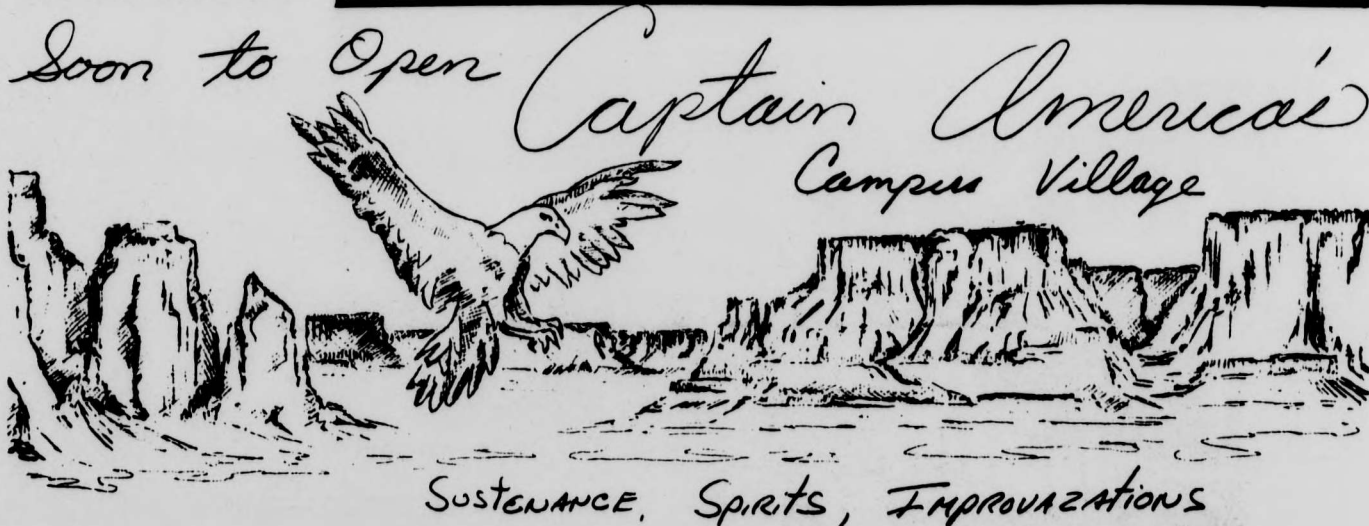 Soon to Open Captain America's
Campus Village
SUSTENANCE, SPIRITS, IMPROVAZATIONS